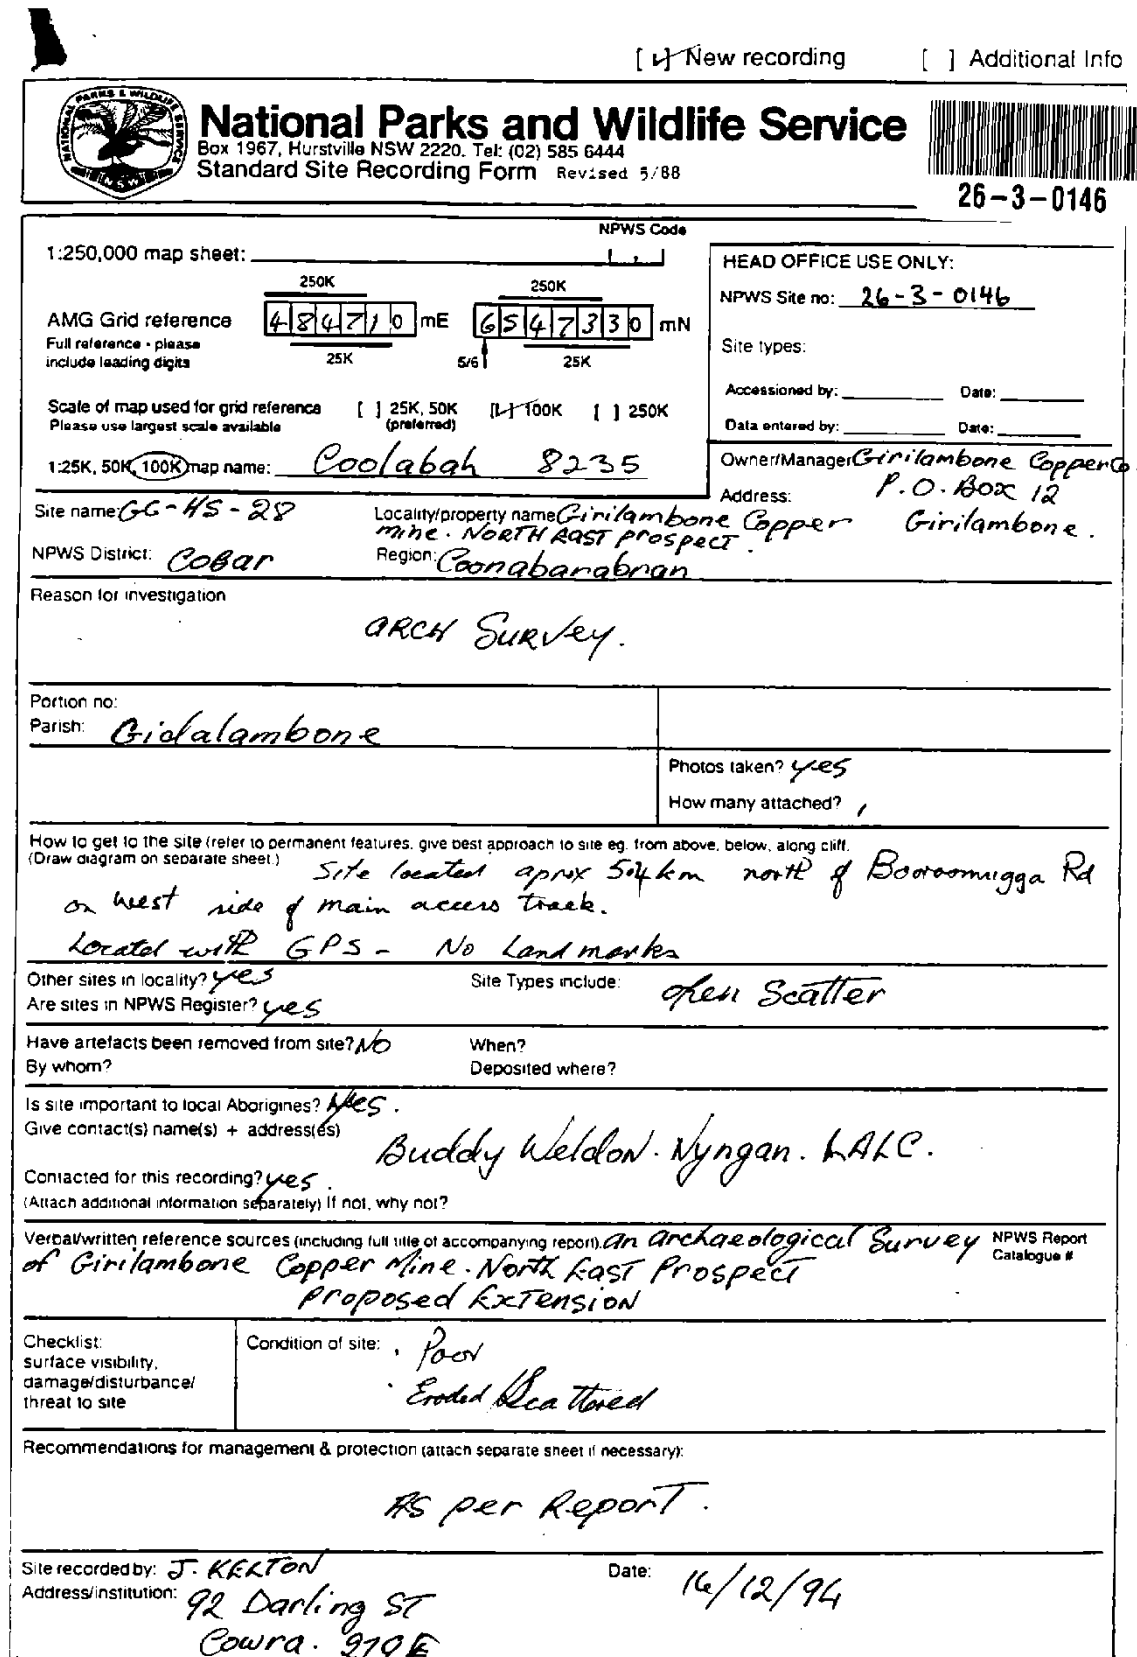 [✓] New recording [ ] Additional Info
NATIONAL PARKS & WILDLIFE SERVICE
N.S.W.
National Parks and Wildlife Service
Box 1967, Hurstville NSW 2220. Tel: (02) 585 6444
Standard Site Recording Form Revised 5/88
26-3-0146
NPWS Code
1:250,000 map sheet:
HEAD OFFICE USE ONLY:
250K 250K
NPWS Site no: 26-3-0146
AMG Grid reference 484710 mE 6547330 mN
Full reference - please
include leading digits
25K 5/6 25K
Site types:
Accessioned by: Date:
Scale of map used for grid reference [ ] 25K, 50K [✓] 100K [ ] 250K
Please use largest scale available (preferred)
Data entered by: Date:
1:25K, 50K, 100K map name: Coolabah 8235
Owner/Manager Girilambone Copper Co
Address: P.O. Box 12
Girilambone.
Site name GG-HS-28
Locality/property name Girilambone Copper
mine. NORTH EAST prospect.
NPWS District: Cobar
Region: Coonabarabran
Reason for investigation
ARCH Survey.
Portion no:
Parish: Gidalambone
Photos taken? yes
How many attached?
How to get to the site (refer to permanent features, give best approach to site eg. from above, below, along cliff.
(Draw diagram on separate sheet.)
Site located aprox 5.4km north of Booroomugga Rd
on west side of main access track.
Located with GPS - No Landmarks
Other sites in locality? yes
Site Types include: Open Scatter
Are sites in NPWS Register? yes
Have artefacts been removed from site? No When?
By whom? Deposited where?
Is site important to local Aborigines? Yes.
Give contact(s) name(s) + address(es)
Buddy Weldon. Nyngan. LALC.
Contacted for this recording? yes.
(Attach additional information separately) If not, why not?
Verbal/written reference sources (including full title of accompanying report). An Archaeological Survey
of Girilambone Copper Mine. North East Prospect
Proposed Extension
NPWS Report
Catalogue #
Checklist:
surface visibility,
damage/disturbance/
threat to site
Condition of site: . Poor
. Eroded/Scattered
Recommendations for management & protection (attach separate sheet if necessary):
As per Report.
Site recorded by: J. KELTON
Date: 14/12/94
Address/institution: 92 Darling ST
Cowra.